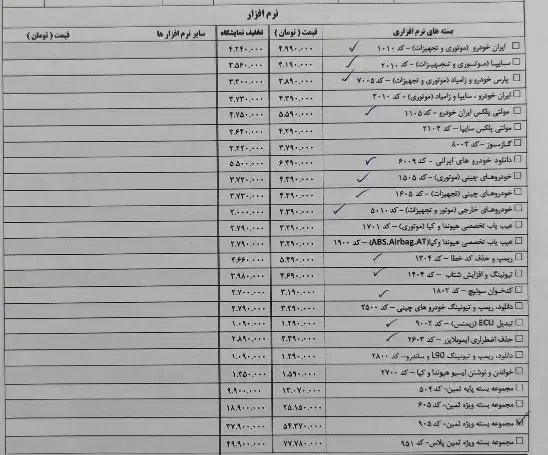 نرم افزار
بسته های نرم افزاری قیمت ( تومان ) تخفیف نمایشگاه سایر نرم افزار ها قیمت ( تومان )
ایران خودرو (موتوری و تجهیزات) - کد ۱۰۱۰ ۴.۹۹۰.۰۰۰ ۴.۲۴۰.۰۰۰
سایپا (موتوری و تجهیزات) - کد ۲۰۱۰ ۴.۱۹۰.۰۰۰ ۳.۵۶۰.۰۰۰
پارس خودرو و زامیاد (موتوری و تجهیزات) - کد ۷۰۰۵ ۳.۸۹۰.۰۰۰ ۳.۳۰۰.۰۰۰
ایران خودرو ، سایپا و زامیاد (موتوری) - کد ۳۰۱۰ ۴.۳۹۰.۰۰۰ ۳.۷۳۰.۰۰۰
مولتی پلکس ایران خودرو - کد ۱۱۰۵ ۵.۵۹۰.۰۰۰ ۴.۷۵۰.۰۰۰
مولتی پلکس سایپا - کد ۲۱۰۴ ۴.۲۹۰.۰۰۰ ۳.۶۴۰.۰۰۰
گازسوز - کد ۸۰۰۲ ۳.۷۹۰.۰۰۰ ۳.۲۲۰.۰۰۰
دانلود خودرو های ایرانی - کد ۶۰۰۹ ۶.۴۹۰.۰۰۰ ۵.۵۰۰.۰۰۰
خودروهای چینی (موتوری) - کد ۱۵۰۵ ۴.۳۹۰.۰۰۰ ۳.۷۳۰.۰۰۰
خودروهای چینی (تجهیزات) - کد ۱۶۰۵ ۴.۳۹۰.۰۰۰ ۳.۷۳۰.۰۰۰
خودروهای خارجی (موتور و تجهیزات) - کد ۵۰۱۰ ۲.۳۹۰.۰۰۰ ۲.۰۰۰.۰۰۰
عیب یاب تخصصی هیوندا و کیا (موتوری) - کد ۱۷۰۱ ۳.۲۹۰.۰۰۰ ۲.۷۹۰.۰۰۰
عیب یاب تخصصی هیوندا وکیا(ABS,Airbag,AT) - کد ۱۹۰۰ ۳.۲۹۰.۰۰۰ ۲.۷۹۰.۰۰۰
ریمپ و حذف کد خطا - کد ۱۳۰۴ ۵.۴۹۰.۰۰۰ ۴.۶۶۰.۰۰۰
تیونینگ و افزایش شتاب - کد ۱۴۰۴ ۴.۶۹۰.۰۰۰ ۳.۹۸۰.۰۰۰
کدخوان سوئیچ - کد ۱۸۰۲ ۳.۱۹۰.۰۰۰ ۲.۷۰۰.۰۰۰
دانلود، ریمپ و تیونینگ خودرو های چینی - کد ۲۵۰۰ ۳.۲۹۰.۰۰۰ ۲.۷۹۰.۰۰۰
تبدیل ECU (زیمنس) - کد ۹۰۰۲ ۱.۲۹۰.۰۰۰ ۱.۰۹۰.۰۰۰
حذف اضطراری ایموبلایزر - کد ۲۶۰۳ ۳.۳۹۰.۰۰۰ ۲.۸۹۰.۰۰۰
دانلود، ریمپ و تیونینگ L90 و ساندرو - کد ۲۸۰۰ ۱.۲۹۰.۰۰۰ ۱.۰۹۰.۰۰۰
خواندن و نوشتن ایسیو هیوندا و کیا - کد ۲۷۰۰ ۱.۵۹۰.۰۰۰ ۱.۳۵۰.۰۰۰
مجموعه بسته پایه ثمین- کد ۵۰۴ ۱۳.۰۷۰.۰۰۰ ۹.۹۰۰.۰۰۰
مجموعه بسته ویژه ثمین- کد ۶۰۵ ۲۵.۱۵۰.۰۰۰ ۱۸.۹۰۰.۰۰۰
مجموعه بسته ویژه ثمین- کد ۹۰۵ ۵۴.۳۷۰.۰۰۰ ۳۷.۹۰۰.۰۰۰
مجموعه بسته ویژه ثمین پلاس- کد ۹۵۱ ۷۷.۷۸۰.۰۰۰ ۴۹.۹۰۰.۰۰۰